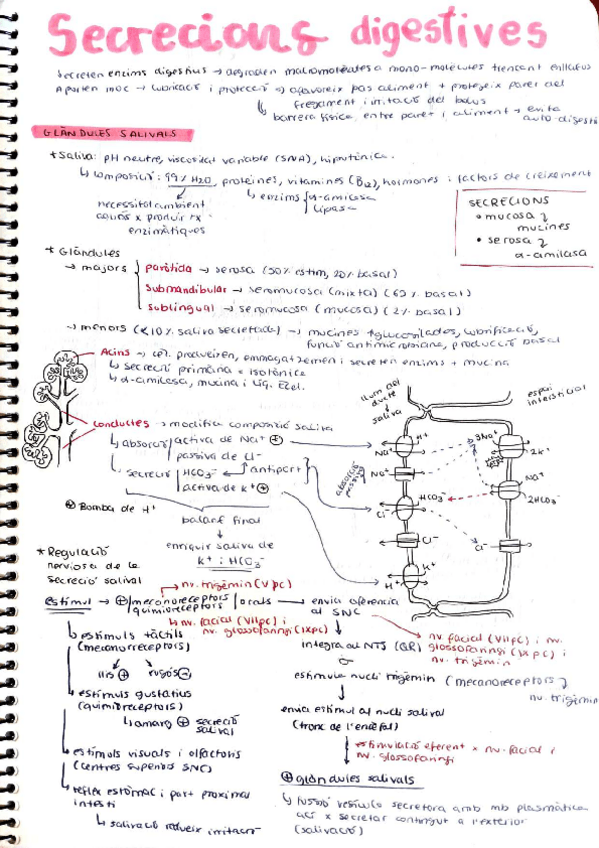 Secrecions digestives
Secreten enzims digestius → degraden macromolècules a mono-molècules trencant enllaços
Aporten moc → lubricació i protecció → afavoreix pas aliment + protegeix paret del
fregament i irritació del bolus
↳ barrera física, entre paret i aliment → evita
auto-digestió
GLÀNDULES SALIVALS
* Saliva: pH neutre, viscositat variable (SNA), hipotònica.
↳ composició: 99% H2O, proteïnes, vitamines (B12), hormones i factors de creixement
necessitat ambient
aquós x produir rx
enzimàtiques
↳ enzims { α-amilasa
lipasa
SECRECIONS
• mucosa
mucines
• serosa
α-amilasa
* Glàndules
→ majors
paròtida → serosa (50% estim, 20% basal)
submandibular → seromucosa (mixta) (69% basal)
sublingual → seromucosa (mucosa) (2% basal)
→ menors (<10% saliva secretada) → mucines glucosilades, lubrificació,
funció antimicrobiana, producció basal
Acins → cèl. produeixen, emmagatzemen i secreten enzims + mucina
↳ secreció primària = isotònica
↳ α-amilasa, mucina i líq. Ecel.
conductes → modifica composició saliva
↳ absorció activa de Na+ ⊕
passiva de Cl-
↳ secreció HCO3- ← antiport
activa de K+ ⊕
⊕ Bomba de H+
balanç final
enriquir saliva de
K+ i HCO3-
llum del
ducte
↓
saliva
espai
intersticial
absorció
passiva
H+
Na+
3Na+
2K+
Na+
HCO3-
Na+
2HCO3-
Cl-
Cl-
Cl-
K+
H+
* Regulació
nerviosa de la
secreció salival
→ nv. trigèmin (V pc)
estímul → ⊕ mecanoreceptors / quimioreceptors / orals → envia aferència
al SNC
↳ nv. facial (VII pc) i
nv. glossofaringi (IX pc)
nv. facial (VII pc) i nv.
glossofaringi (IX pc) i
nv. trigèmin
↳ estímuls tàctils
(mecanorreceptors)
llis ⊕ rugós ⊖
integra al NTS (QR)
o
estimula nucli trigèmin (mecanoreceptors)
nv. trigèmin
↳ estímuls gustatius
(quimioreceptors)
↳ amarg ⊕ secreció
salival
envia estímul al nucli salival
(tronc de l'encèfal)
↳ estímuls visuals i olfactoris
(centres superiors SNC)
estimulació eferent x nv. facial i
nv. glossofaringi
⊕ glàndules salivals
↳ reflex estómac i part proximal
intestí
↳ salivació redueix irritació
↳ fusió vesícula secretora amb mb plasmàtica
x secretar contingut a l'exterior
(salivació)